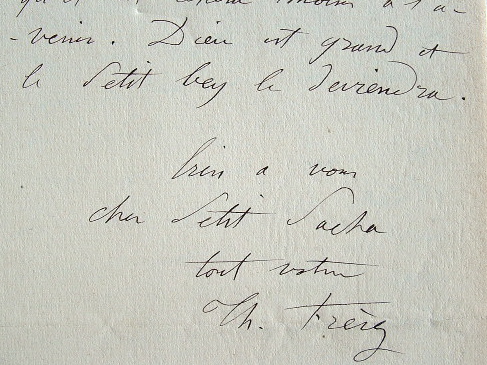 à l'a-
-venir. Dieu est grand et
le petit bey le deviendra.
bien a vous
cher petit Pacha
tout votre
Th. Frère